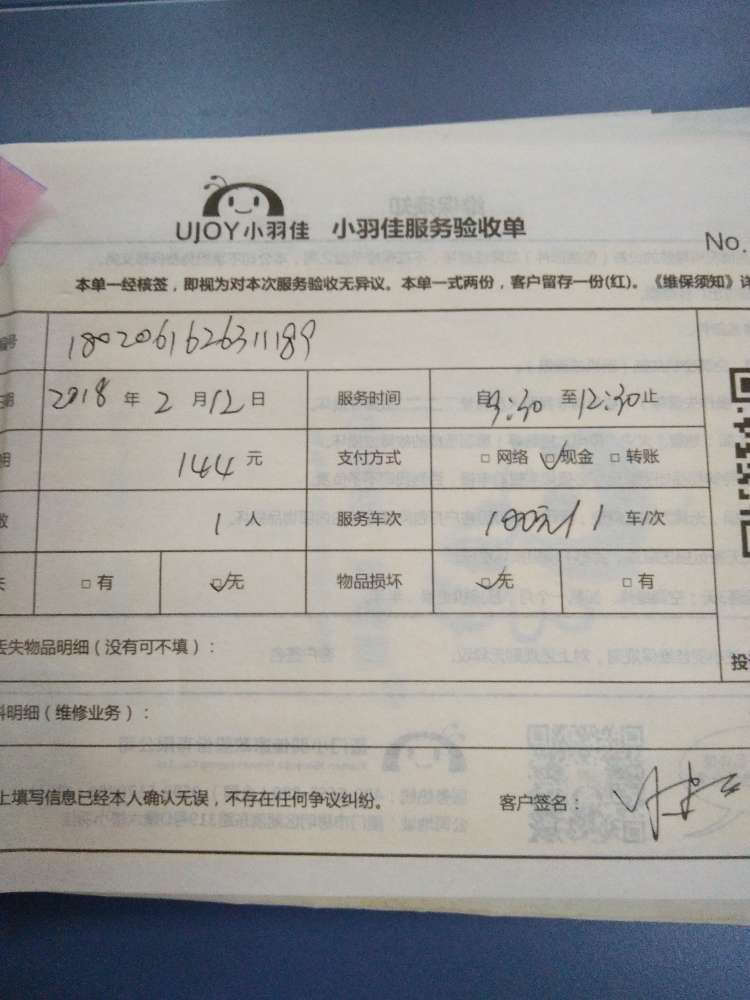 UJOY小羽佳 小羽佳服务验收单
No.
本单一经核签，即视为对本次服务验收无异议。本单一式两份，客户留存一份(红)。《维保须知》详
180206162631189
2018年2月12日 服务时间 自9:30至12:30止
144元 支付方式 □网络 □现金 □转账
1人 服务车次 1车/次
□有 □无 物品损坏 □无 □有
丢失物品明细（没有可不填）：
料明细（维修业务）：
上填写信息已经本人确认无误，不存在任何争议纠纷。 客户签名：